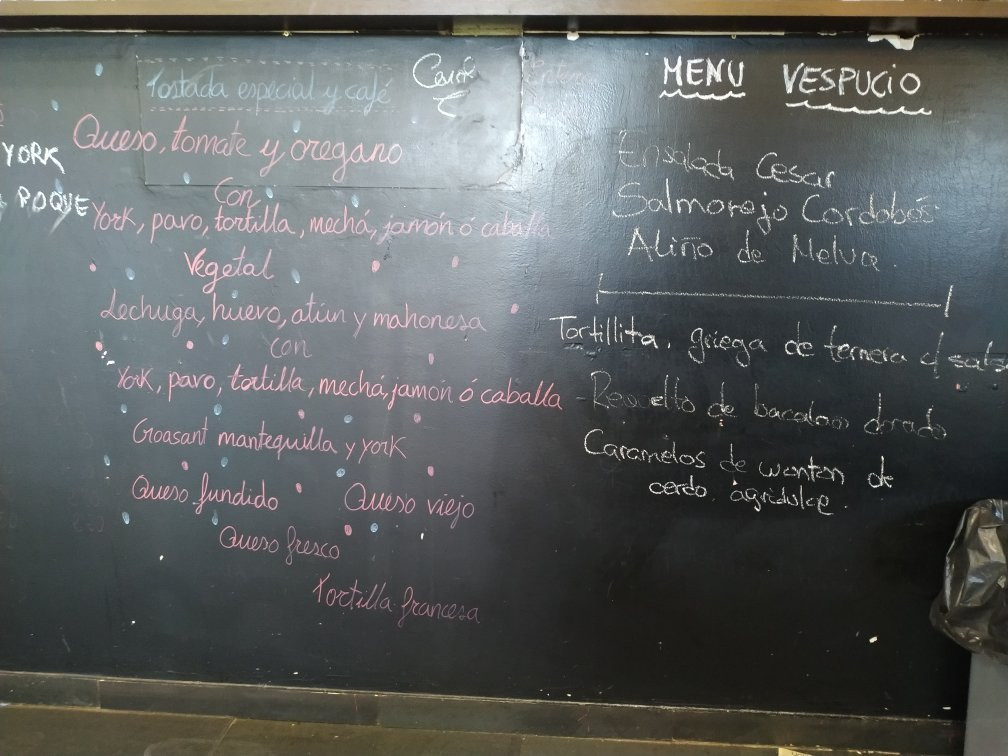 YORK
ROQUE
Tostada especial y café
Queso, tomate y oregano
Con
York, pavo, tortilla, mechá, jamón ó caballa
Vegetal
Lechuga, huevo, atún y mahonesa
con
York, pavo, tortilla, mechá, jamón ó caballa
Croasant mantequilla y york
Queso fundido Queso viejo
Queso fresco
Tortilla francesa
MENU VESPUCIO
Ensalada Cesar
Salmorejo Cordobés
Aliño de Melva.
Tortillita, griega de ternera c/ salsa
- Revuelto de bacalao dorado
Caramelos de wanton de
cerdo agridulce.